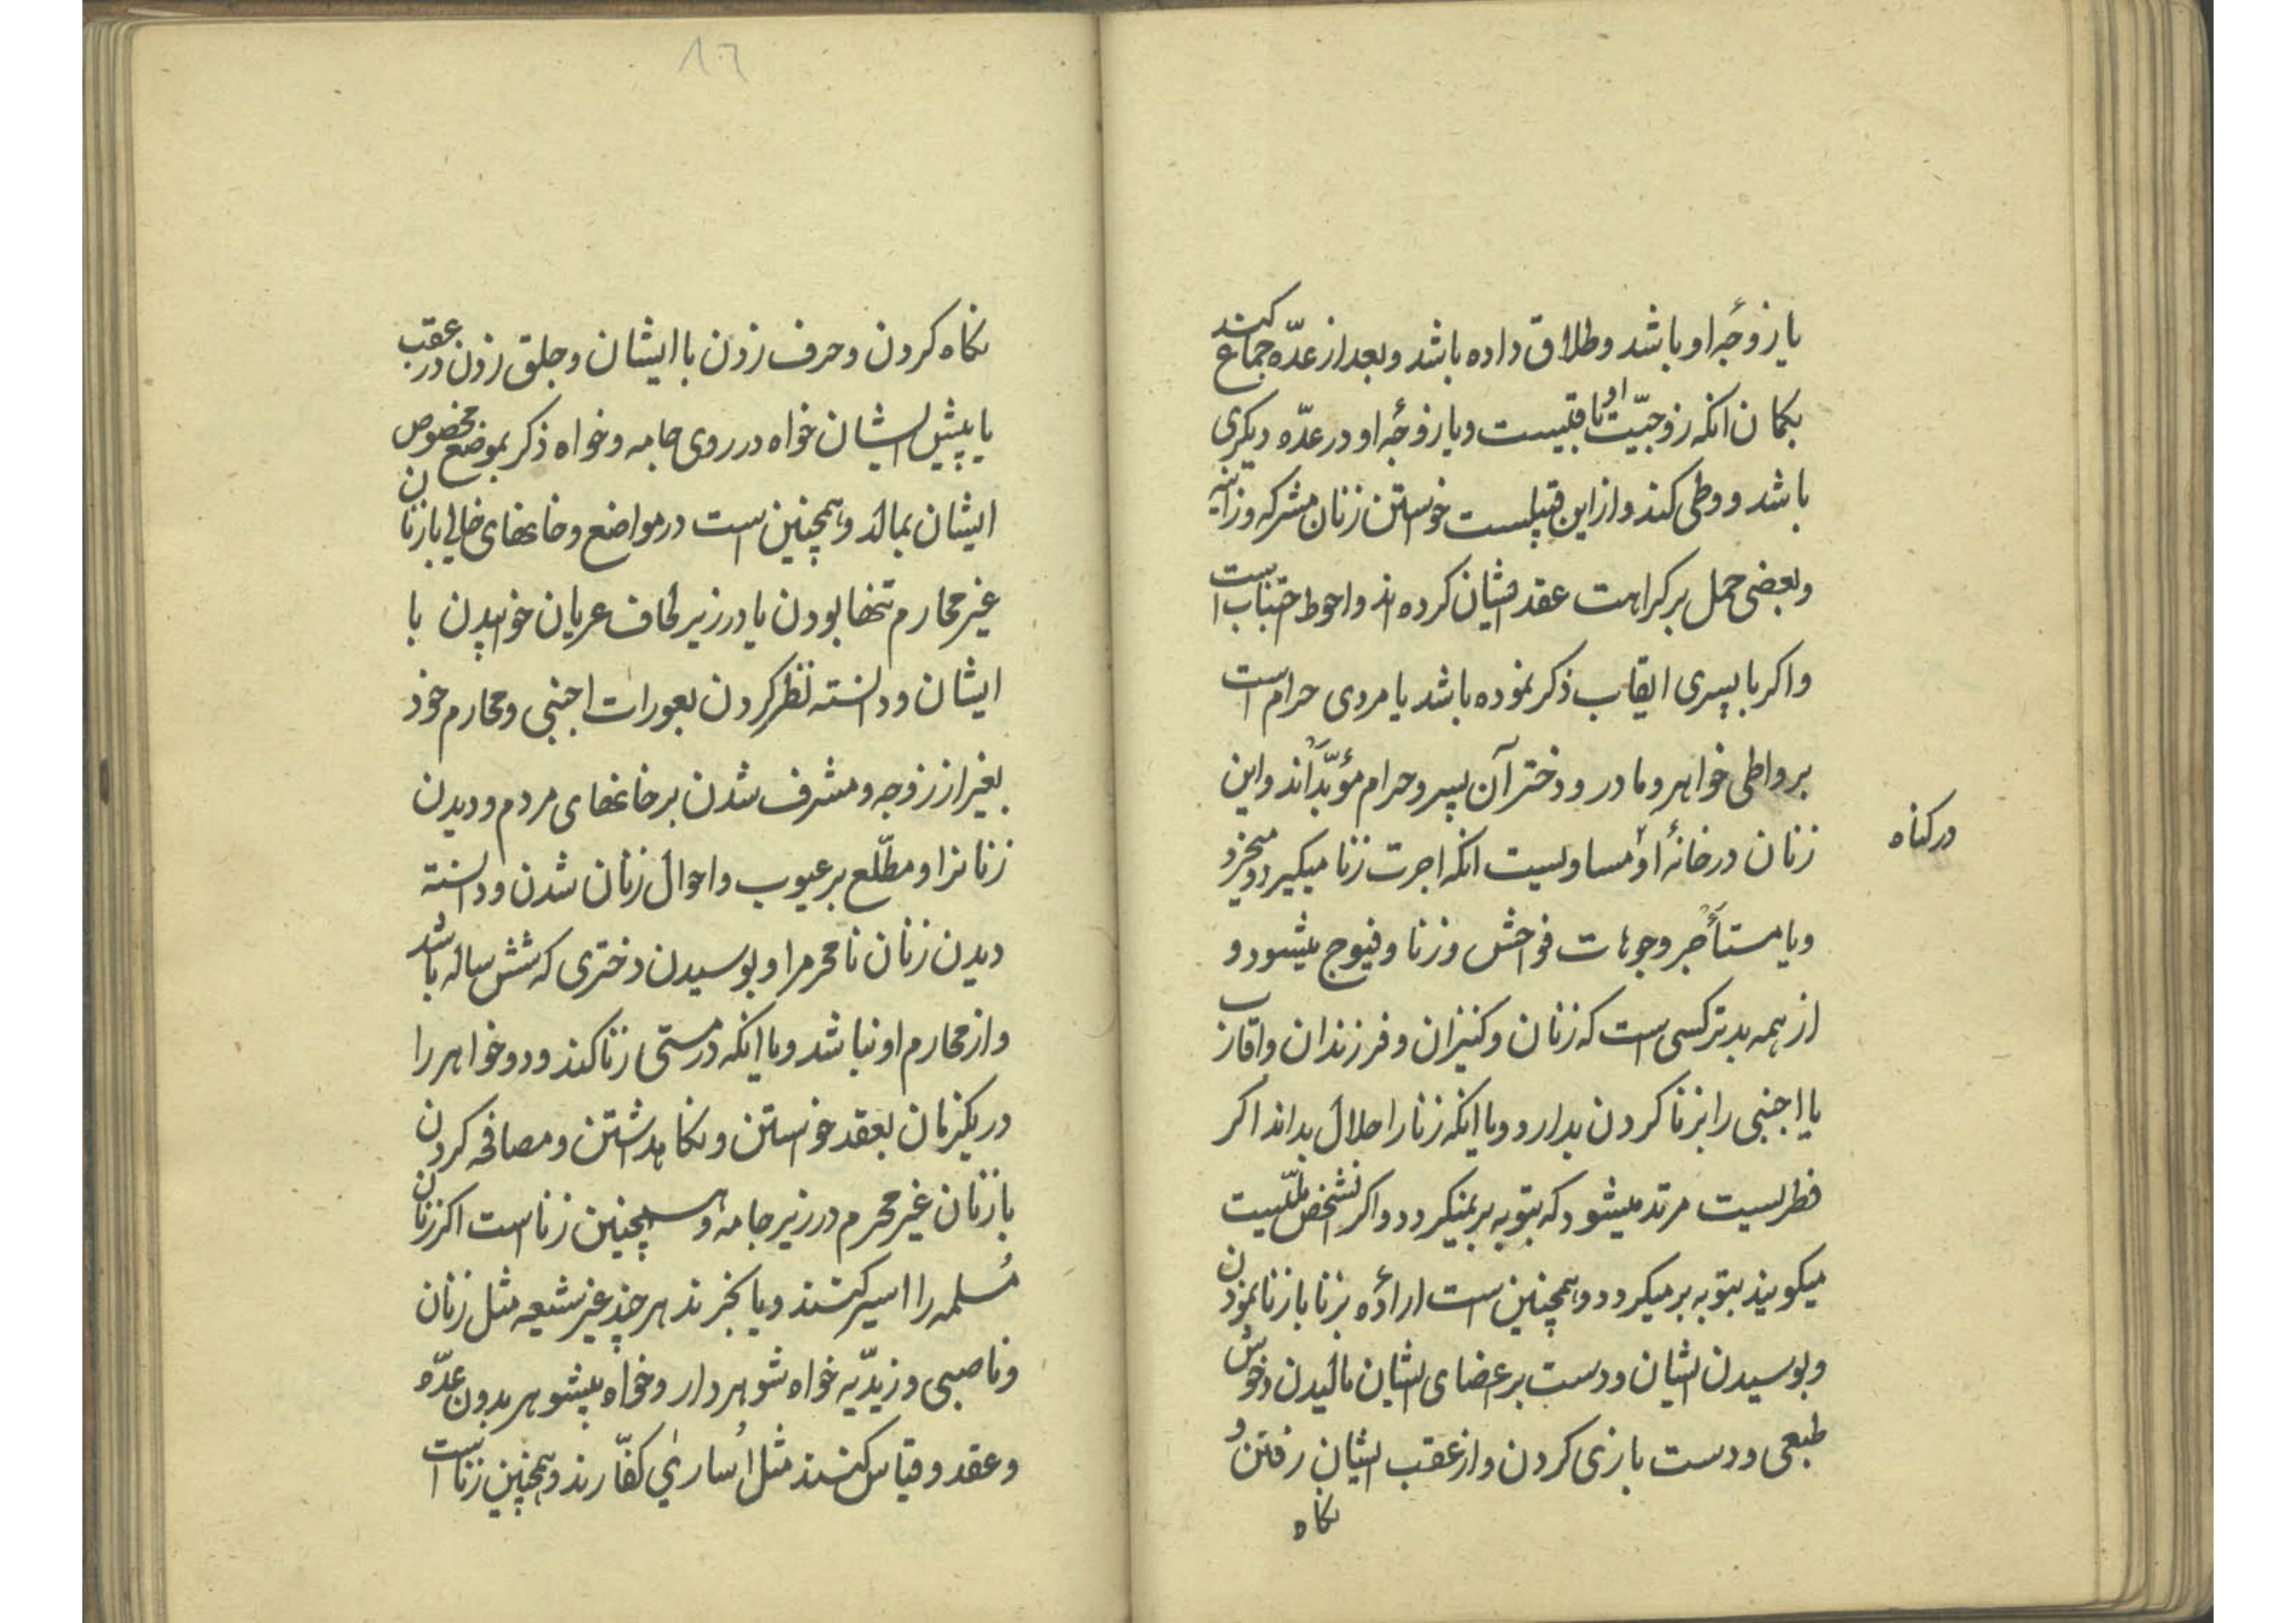 یا زوجهٔ او باشد و طلاق داده باشد و بعد از عدّه جماع کند
بکمان انکه زوجیّت او باقیست و یا زوجهٔ او در عدّه دیکری
باشد و وطی کند و از این قبیلست خواستن زنان مشرکه و زانیه
و بعضی حمل بر کراهت عقد ایشان کرده اند و احوط اجتناب است
و اکر با پسری ایقاب ذکر نموده باشد یا مردی حرام است
بر واطی خواهر و مادر و دختر آن پسر و حرام مؤبّداند و این
زنان در خانهٔ او مساویست انکه اجرت زنا میکیرد و میخرد
در کناه
و یا مستأجر وجوهات فواحش و زنا و فیوج میشود و
از همه بدتر کسی است که زنان و کنیزان و فرزندان و اقارب
یا اجنبی را بزنا کردن بدارد و یا انکه زنا را حلال بداند اکر
فطریست مرتد میشود که بتوبه برنمیکردد و اکر انشخص ملّیست
میکویند بتوبه برمیکردد و همچنین است ارادهٔ بزنا با زنا نمودن
و بوسیدن ایشان و دست بر اعضای ایشان مالیدن و خوش
طبعی و دست بازی کردن و از عقب ایشان رفتن و
نکاه
١٦
نکاه کردن و حرف زدن با ایشان و جلق زدن در عقب
یا پیش ایشان خواه در روی جامه و خواه ذکر بموضع مخصوص
ایشان بمالد و همچنین است در مواضع و خانهای خالی با زنان
غیر محارم تنها بودن یا در زیر لحاف عریان خوابیدن با
ایشان و دانسته نظر کردن بعورات اجنبی و محارم خود
بغیر از زوجه و مشرف شدن بر خانهای مردم و دیدن
زنانرا و مطّلع بر عیوب و احوال زنان شدن و دانسته
دیدن زنان نامحرمرا و بوسیدن دختری که شش ساله باشد
و از محارم او نباشد و یا انکه در مستی زنا کند و دو خواهر را
در یکزمان بعقد خواستن و نکاهداشتن و مصافحه کردن
با زنان غیر محرم در زیر جامه و همچنین زناست اکر زنان
مُسلمه را اسیر کنند و یا بخرند هر چند غیر شیعه مثل زنان
و ناصبی و زیدّیه خواه شوهردار و خواه بیشوهر بدون عدّه
و عقد و قیاس کنند مثل اُساریٰ کفّارند و همچنین زناست